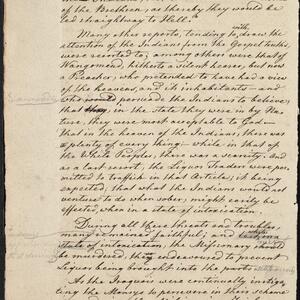 of the Brethren, as thereby they would be
led straightway to Hell."
Many other reports, tending to draw the
with
attention of the Indians from the Gospel truths,
were resorted to; among others were that
Wangomend, hitherto a silent hearer, but now
a Preacher, who pretended to have had a view
of the heavens, and it inhabitants — and
who would persuade the Indians to believe,
that they, in the state they were in by Na-
ture, they were most acceptable to God —
that in the heaven of the Indians, there was
plenty of every thing — while in that of
the White People, there was a scarcity. And
as a last resort, the Liquor Traders were per-
mitted to traffick in that Article; it being
expected, that what the Indians would not
venture to do when sober, might easily be
effected, when in a state of intoxication.
During all these threats and troubles,
many remained faithful; and
state of intoxication, the Missionary
be murdered, they endeavoured to prevent
Liquor being brought into the parts
As the Iroquois were continually instiga-
ting the Monsys to persevere in their scheme